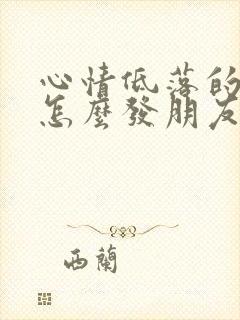 心情低落的
怎麼發朋友
西蘭